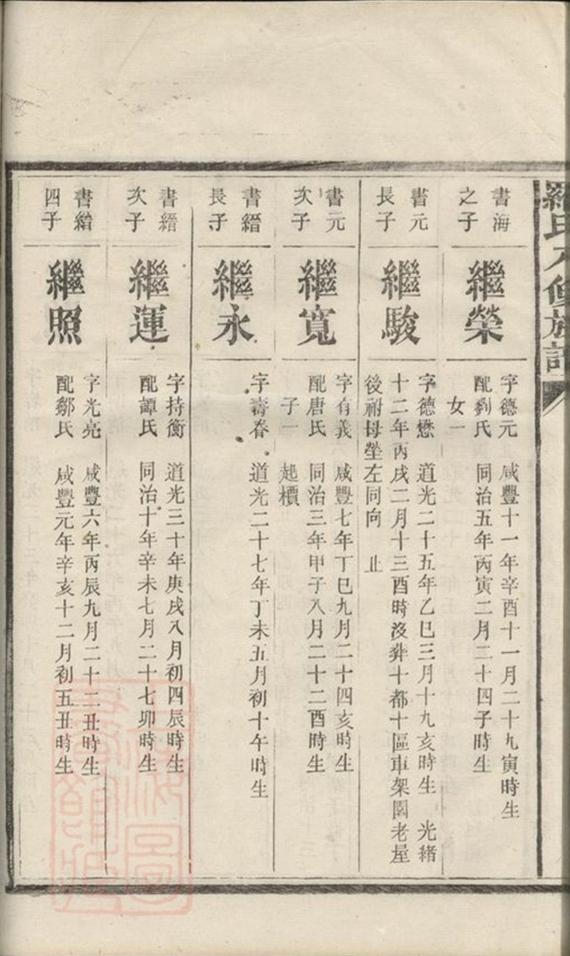 羅氏六修族譜
書海
之子
繼榮
字德元　咸豐十一年辛酉十一月二十九寅時生
配劉氏　同治五年丙寅二月二十四子時生
女一
書元
長子
繼駿
字德懋　道光二十五年乙巳三月十九亥時生　光緒
十二年丙戌二月十三酉時沒葬十都十區車架園老屋
後祔母塋左同向　止
書元
次子
繼寬
字有義　咸豐七年丁巳九月二十四亥時生
配唐氏　同治三年甲子八月二十二酉時生
子一　起檟
書縉
長子
繼永
字壽春　道光二十七年丁未五月初十午時生
書縉
次子
繼運
字持衡　道光三十年庚戌八月初四辰時生
配譚氏　同治十年辛未七月二十七卯時生
書縉
四子
繼照
字光亮　咸豐六年丙辰九月二十二丑時生
配鄒氏　咸豐元年辛亥十二月初五丑時生